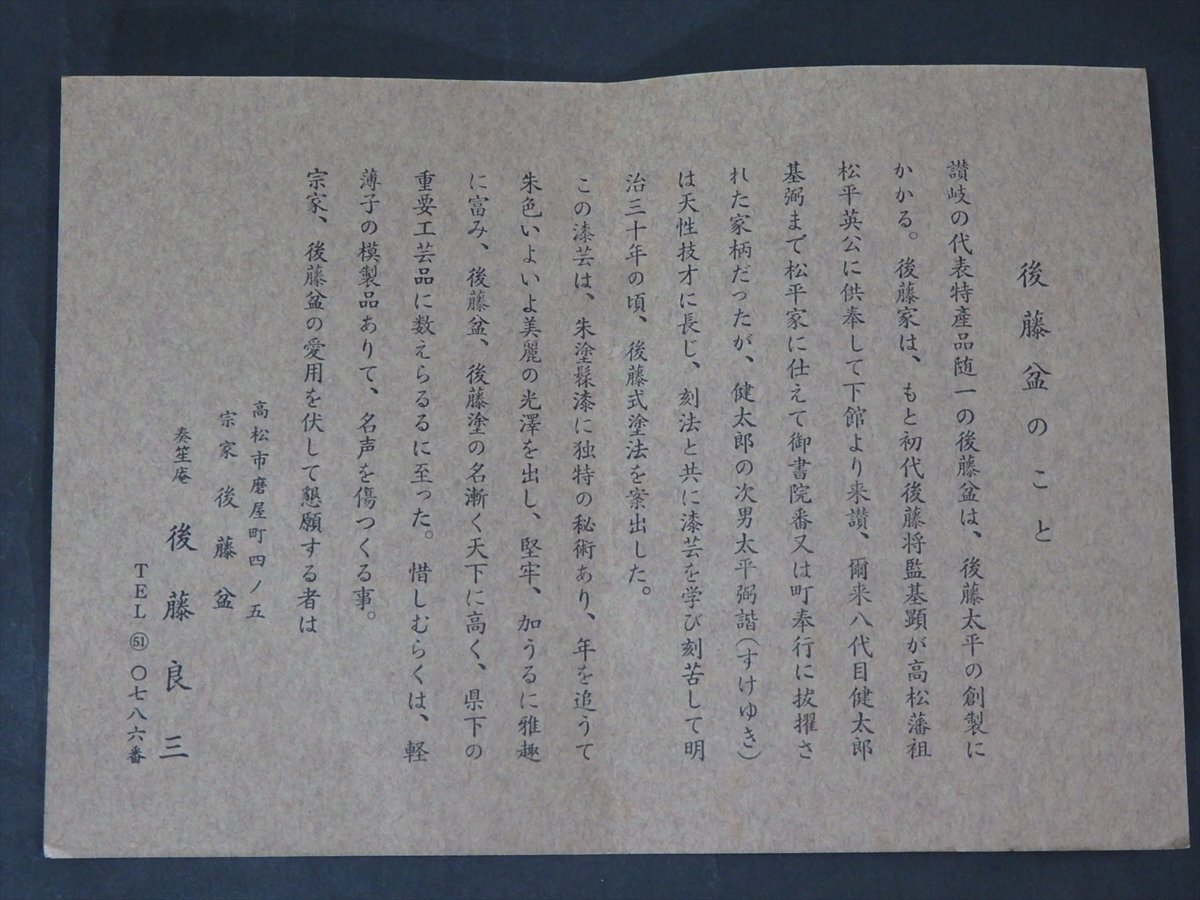 後藤盆のこと
讃岐の代表特產品随一の後藤盆は、後藤太平の創製に
かかる。後藤家は、もと初代後藤将監基顕が高松藩祖
松平英公に供奉して下館より来讃、爾来八代目健太郎
基弼まで松平家に仕えて御書院番又は町奉行に抜擢さ
れた家柄だったが、健太郎の次男太平弼諧(すけゆき)
は天性技才に長じ、刻法と共に漆芸を学び刻苦して明
治三十年の頃、後藤式塗法を案出した。
この漆芸は、朱塗髹漆に独特の秘術あり、年を追うて
朱色いよいよ美麗の光澤を出し、堅牢、加うるに雅趣
に富み、後藤盆、後藤塗の名漸く天下に高く、県下の
重要工芸品に数えらるるに至った。惜しむらくは、軽
薄子の模製品ありて、名声を傷つくる事。
宗家、後藤盆の愛用を伏して懇願する者は
高松市磨屋町四ノ五
宗家 後藤盆
奏笙庵 後藤良三
TEL ㊿ 〇七八六番